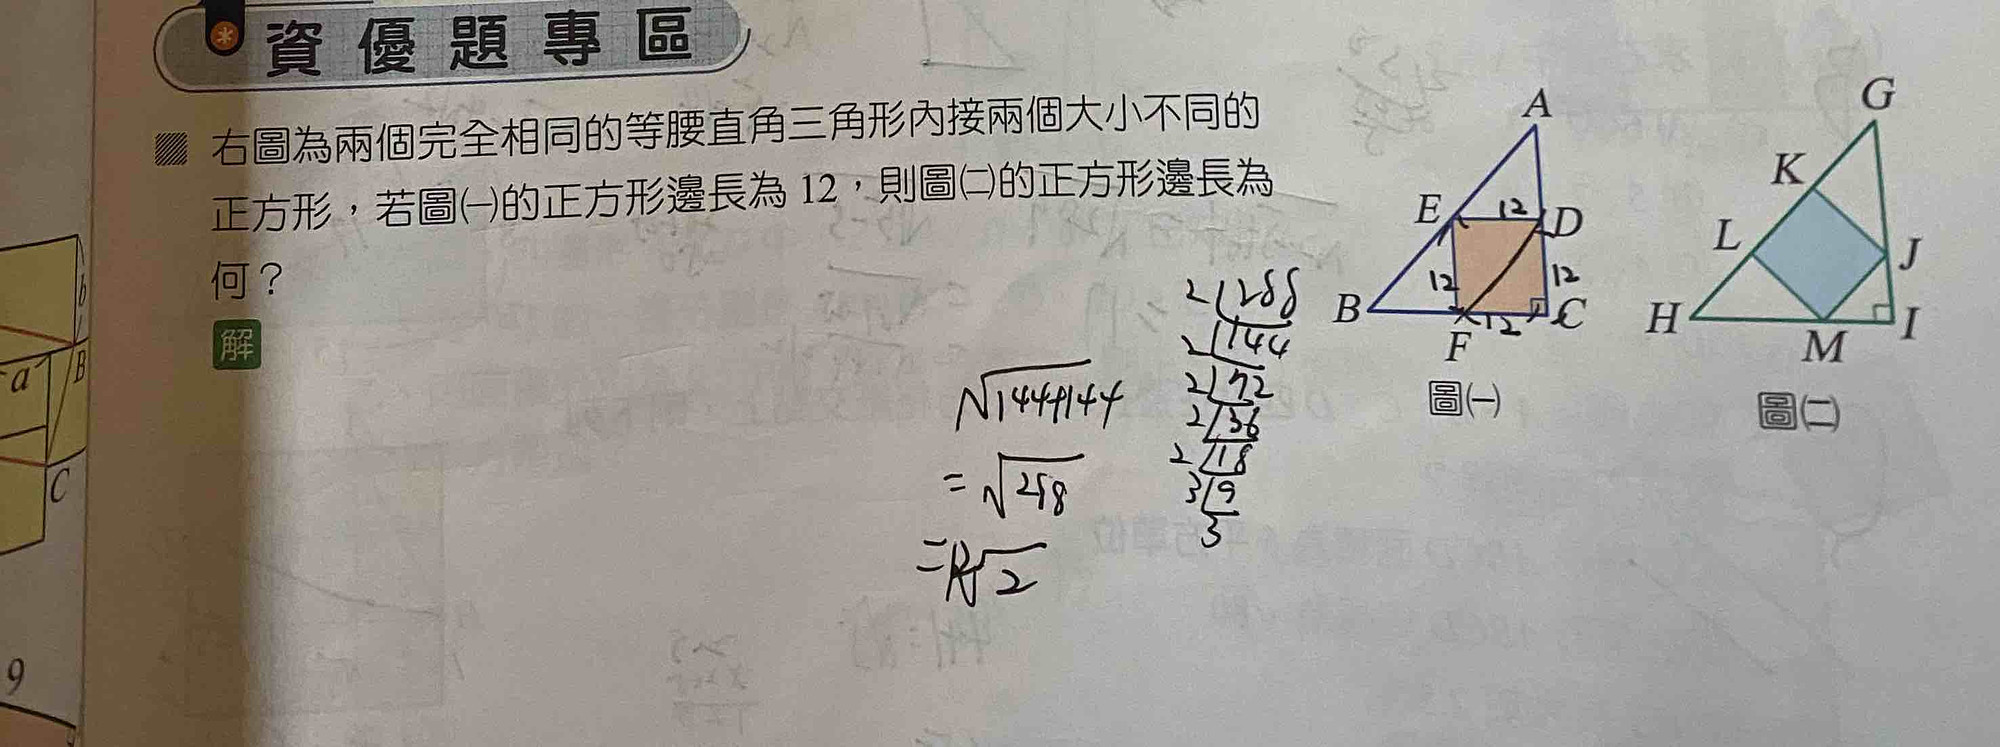 資優題專區
右圖為兩個完全相同的等腰直角三角形內接兩個大小不同的
正方形，若圖㈠的正方形邊長為 12，則圖㈡的正方形邊長為
何？
解
A
E
12
D
12
12
B
12
C
F
圖㈠
G
K
L
J
H
I
M
圖㈡
√144+144
=√288
=12√2
2 288
2 144
2 72
2 36
2 18
3 9
3
b
a
B
C
9